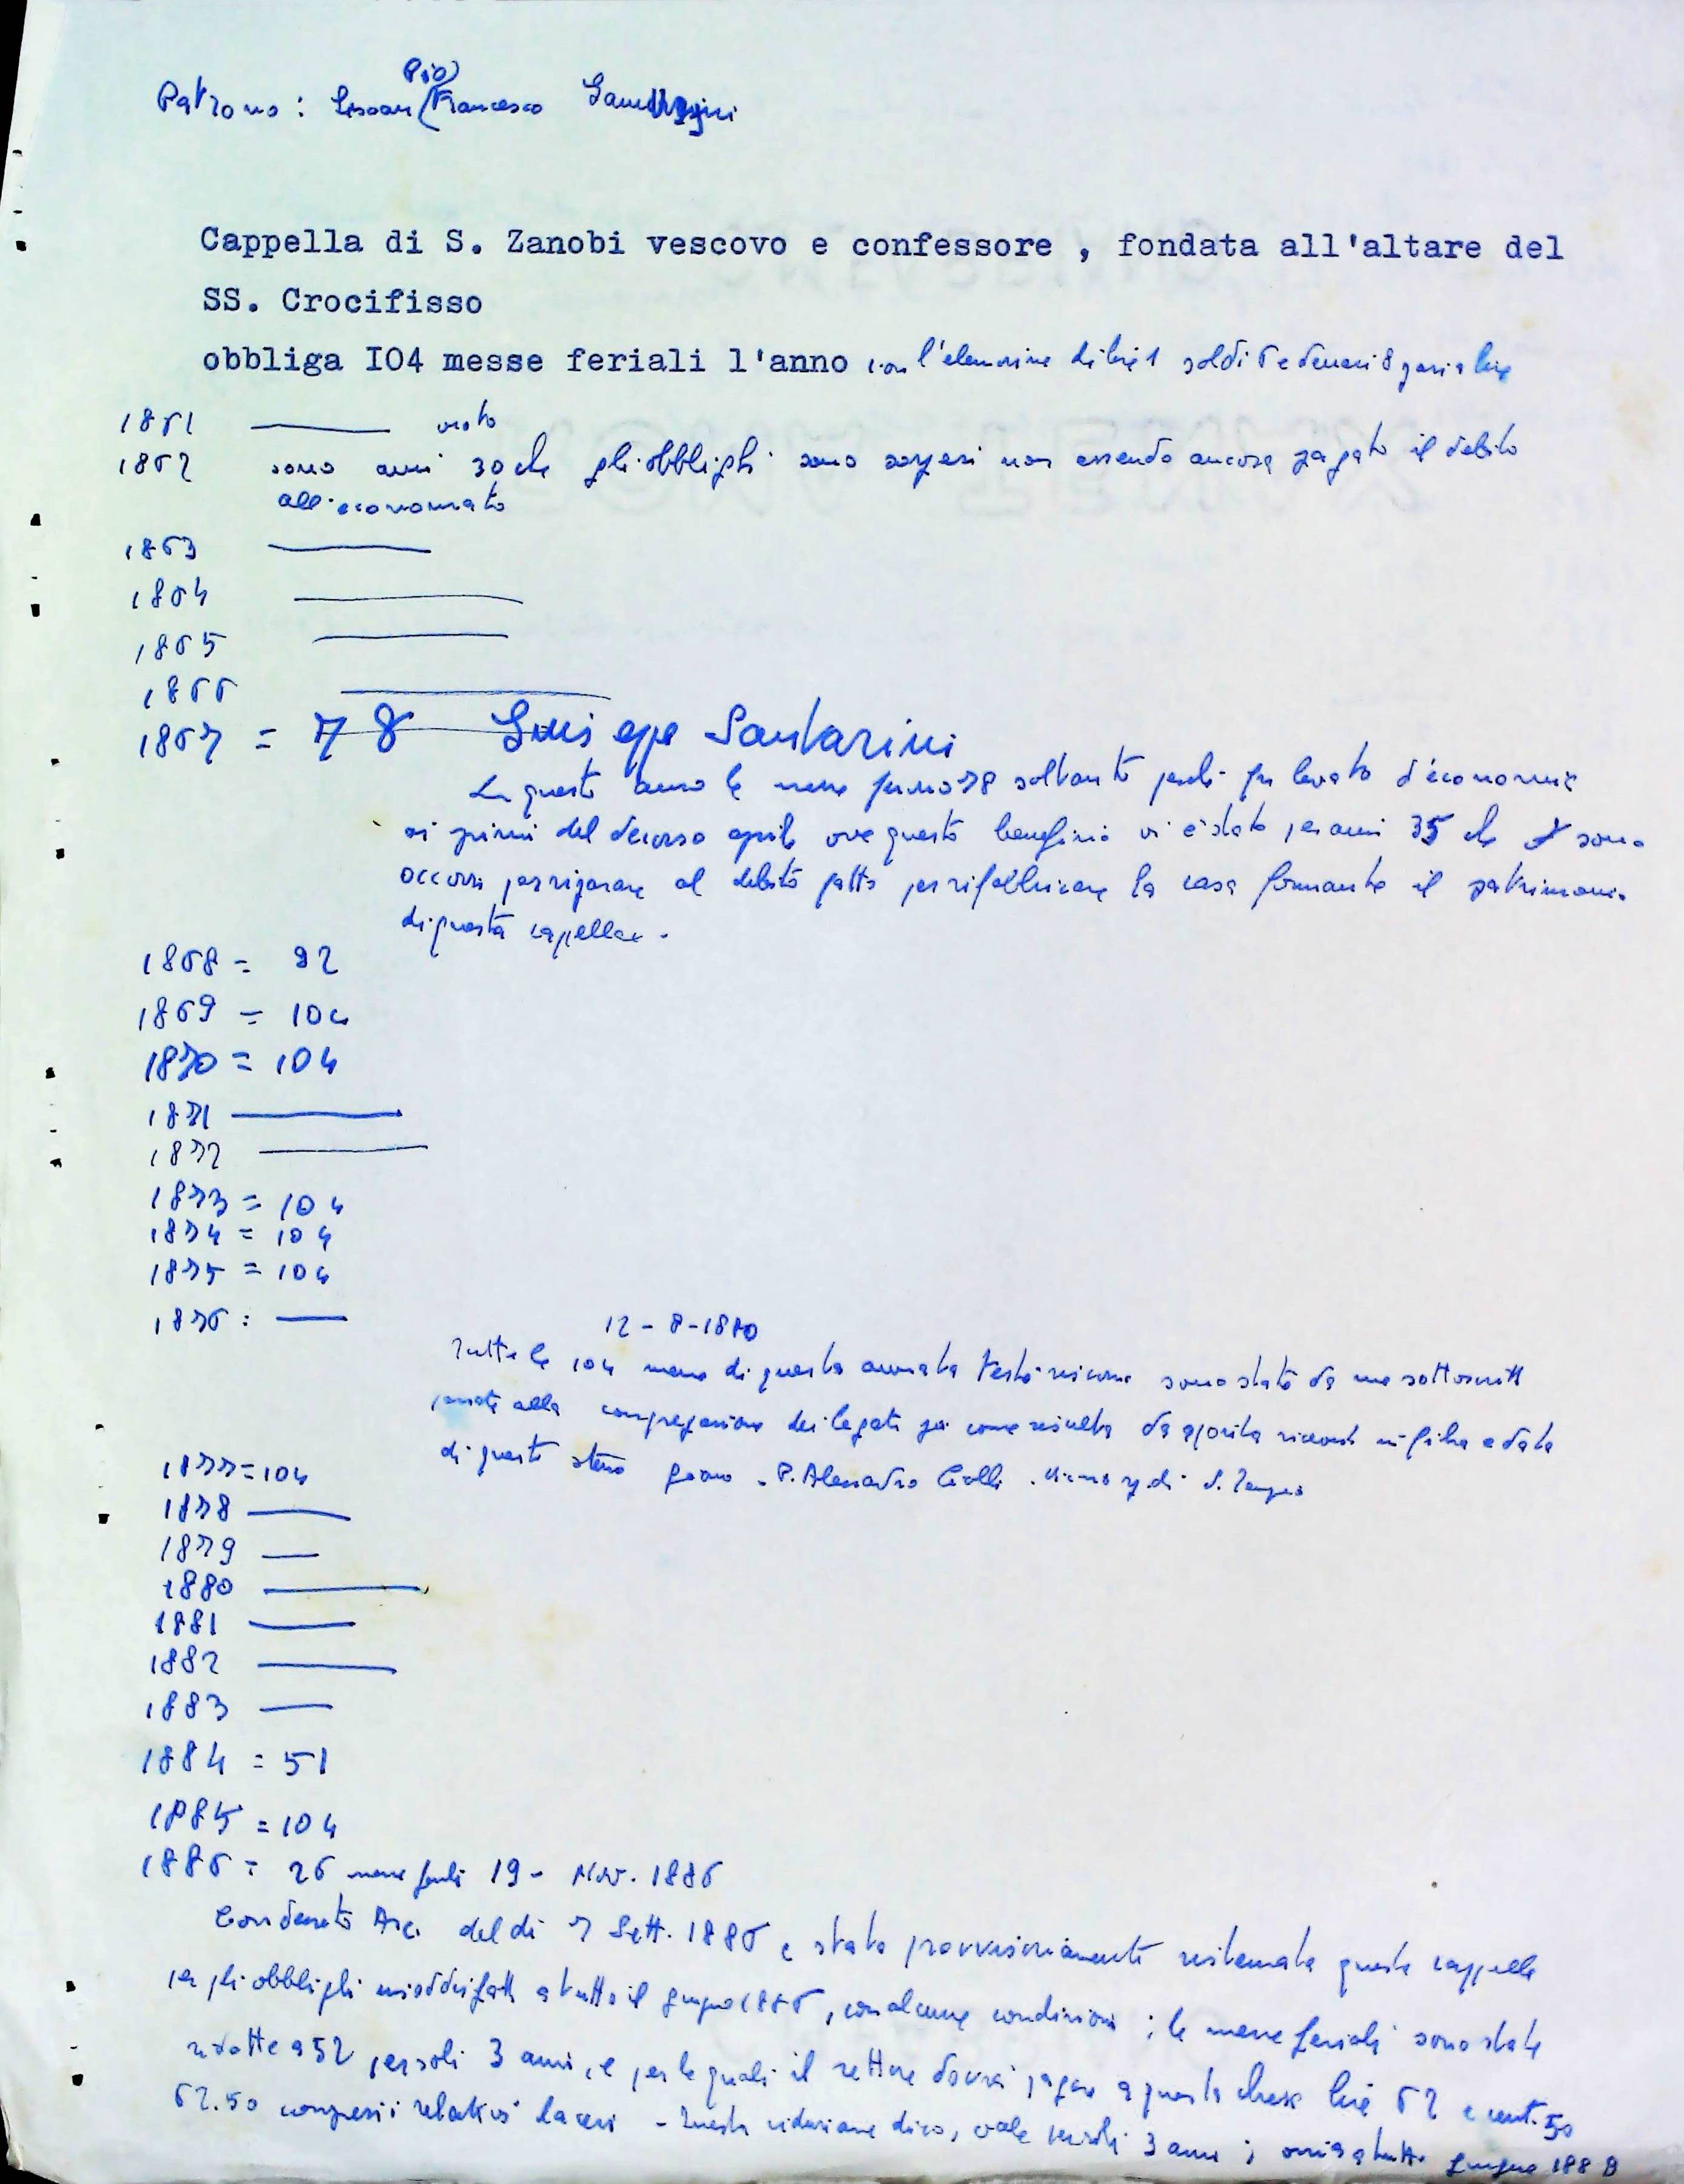 Pio
Patrono: Francesco
Cappella di S. Zanobi vescovo e confessore , fondata all'altare del
SS. Crocifisso
obbliga IO4 messe feriali l'anno con l'elemosina di lire 1 soldi 6 e denari 8 pari a lire
1861 ——— vuoto
1862 sono anni 30 che gli obblighi sono sospesi non essendo ancora pagato il debito
all'economato
1863 ———
1864 ———
1865 ———
1866 ———
1867 = 78 Giuseppe Santarini
In questo anno le messe furono 78 soltanto perché fu levato d'economia
ai primi del decorso aprile ove questo benefizio vi è stato per anni 35 che sono
occorsi per riparare al debito fatto per rifabbricare la casa formante il patrimonio
di questa cappella.
1868 = 92
1869 = 104
1870 = 104
1871 ———
1872 ———
1873 = 104
1874 = 104
1875 = 104
1876: ———
12-8-1880
Tutte le 104 messe di questa annata sono state da me sottoscritto
passate alla congregazione dei legati pii come resulta da apposita ricevuta in filza e data
di questo stesso giorno - P. Alessandro Ciolli
1877=104
1878 ———
1879 ———
1880 ———
1881 ———
1882 ———
1883 ———
1884 = 51
1885 = 104
1886 = 26 messe 19 - Nov. 1886
Con decreto Arc. del di 7 Sett. 1886 è stata provvisoriamente sistemata questa cappella
per gli obblighi insoddisfatti a tutto il giugno 1886, con alcune condizioni; le messe feriali sono state
ridotte a 52 per soli 3 anni, e per le quali il rettore dovrà pagare a questa chiesa lire 62 e cent. 50
62.50 compresi i relativi - Questa riduzione dico, vale per soli 3 anni; ossia a tutto giugno 1888